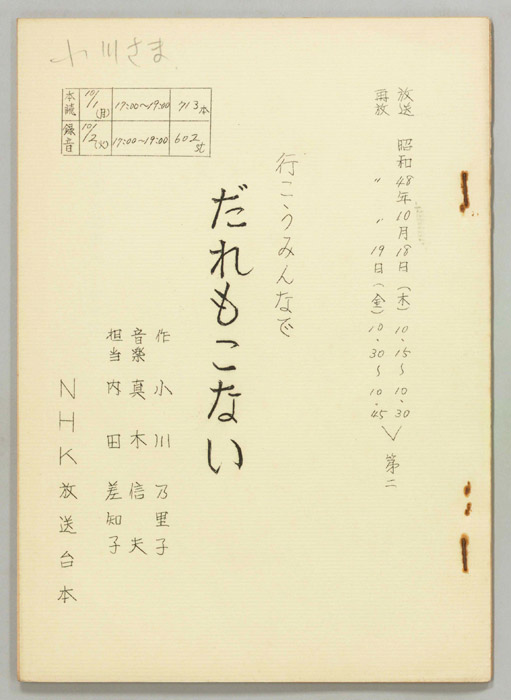 小川さま
本読 10/1(月) 17:00~19:00 713本
録音 10/2(火) 17:00~19:00 602st
放送 昭和48年10月18日(木)10.15~10.30
再放 〃 〃 19日(金)10.30~10.45 > 第二
行こうみんなで
だれもこない
作 小川乃里子
音楽 真木信夫
担当 内田差知子
NHK放送台本